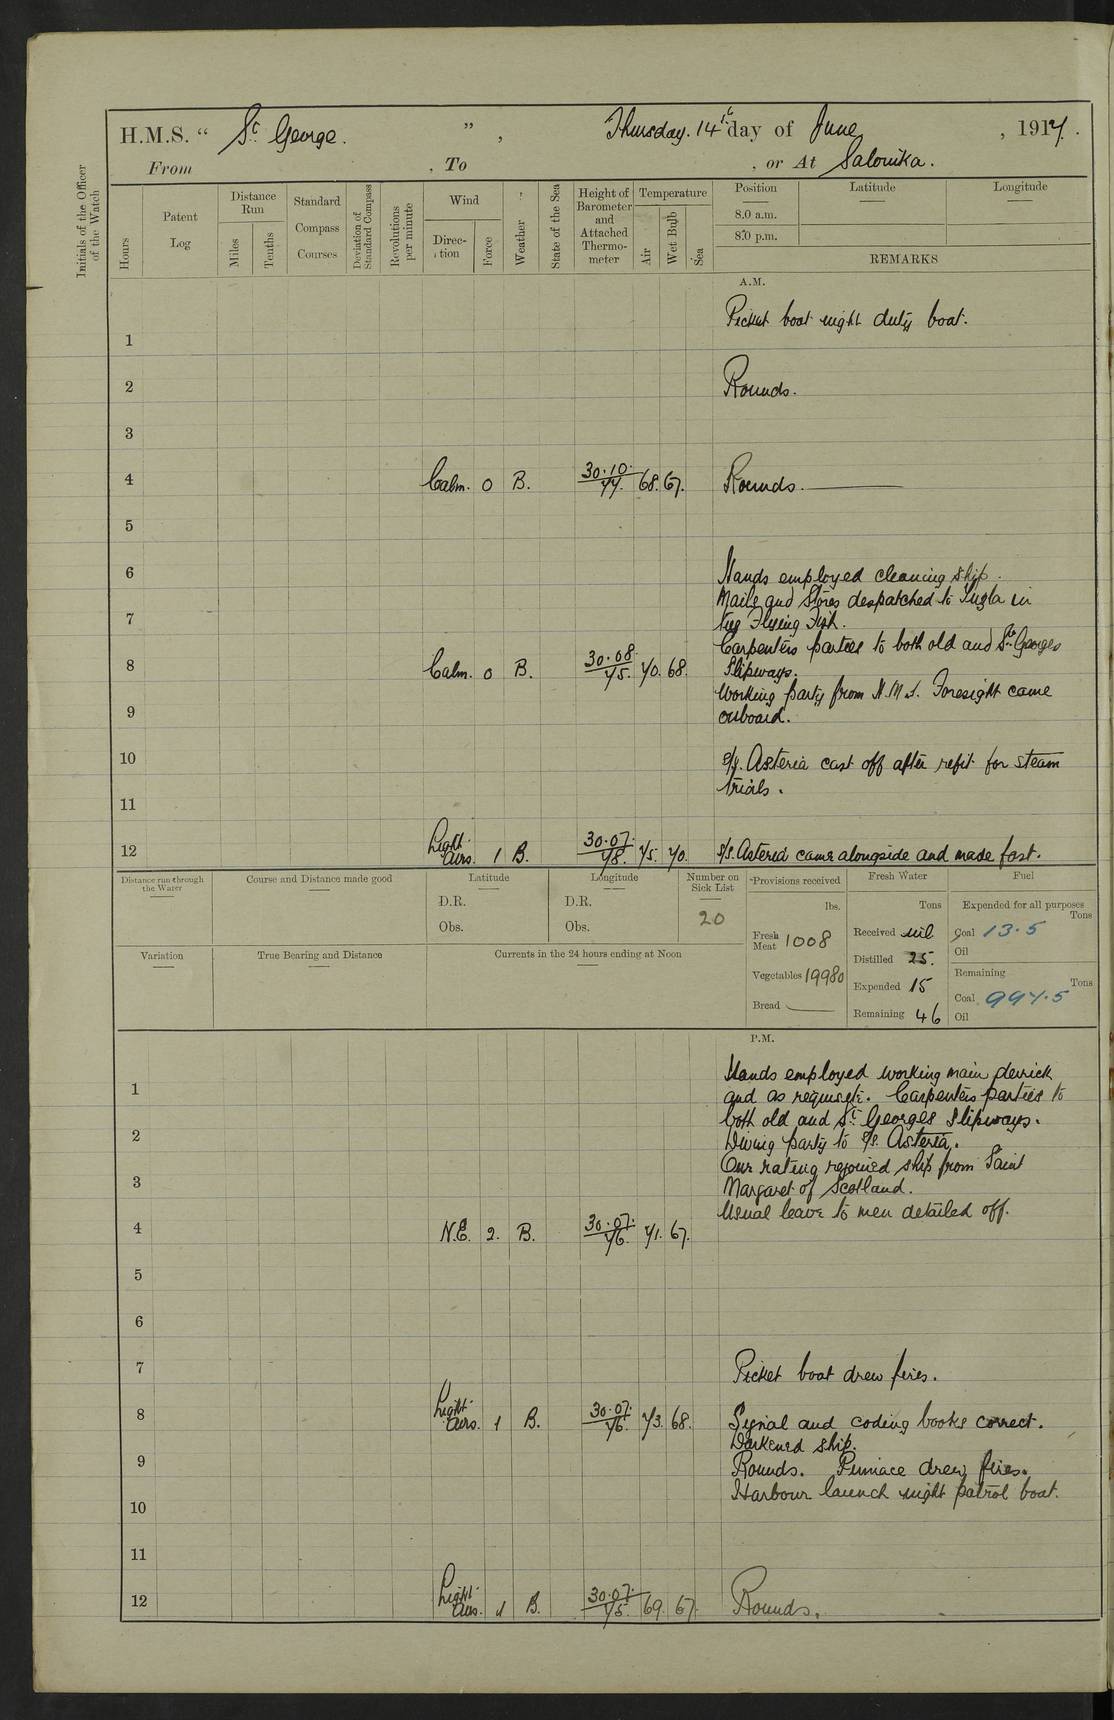 H.M.S. " St. George. " , Thursday. 14th day of June , 1917.
From , To , or At Salonika.
Initials of the Officer of the Watch
Hours
Patent Log
Distance Run
Miles
Tenths
Standard Compass Courses
Deviation of Standard Compass
Revolutions per minute
Wind
Direction
Force
Weather
State of the Sea
Height of Barometer and Attached Thermometer
Temperature
Air
Wet Bulb
Sea
Position Latitude Longitude
8.0 a.m.
8.0 p.m.
REMARKS
A.M.
Picket boat night duty boat.
1
2 Rounds.
3
4 Calm. 0 B. 30.10. 77. 68. 67. Rounds.
5
6 Hands employed cleaning ship.
Mails and Stores despatched to Tuzla in
7 tug Flying Fish.
Carpenters parties to both old and St. Georges
8 Calm. 0 B. 30.08. 75. 70. 68. Slipways.
Working party from H.M.S. Foresight came
9 onboard.
10 Asteria cast off after refit for steam
trials.
11
12 Light airs. 1 B. 30.07. 78. 75. 70. S/S. Asteria came alongside and made fast.
Distance run through the Water
Course and Distance made good
Latitude
D.R.
Obs.
Longitude
D.R.
Obs.
Number on Sick List
20
Provisions received
lbs.
Fresh Meat 1008
Vegetables 19980
Bread
Fresh Water
Tons
Received nil
Distilled 25.
Expended 15
Remaining 46
Fuel
Expended for all purposes
Tons
Coal 13.5
Oil
Remaining
Tons
Coal 997.5
Oil
Variation
True Bearing and Distance
Currents in the 24 hours ending at Noon
P.M.
Hands employed working main derrick
1 and as requisite. Carpenters parties to
both old and St. Georges Slipways.
2 Diving party to S/S. Asteria.
One rating rejoined ship from Saint
3 Margaret of Scotland.
Usual leave to men detailed off.
4 N.E. 2. B. 30.07. 76. 71. 67.
5
6
7 Picket boat drew fires.
8 Light airs. 1 B. 30.07. 76. 73. 68. Signal and coding books correct.
Darkened ship.
9 Rounds. Pinnace drew fires.
Harbour launch night patrol boat.
10
11
12 Light airs. 1 B. 30.07. 75. 69. 67. Rounds.